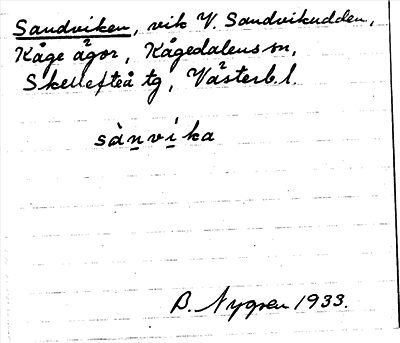 Sandviken, vik V. Sandvikudden,
Kåge ägor, Kågedalens sn,
Skellefteå tg, Västerb. l.
sànvika
B. Nygren 1933.